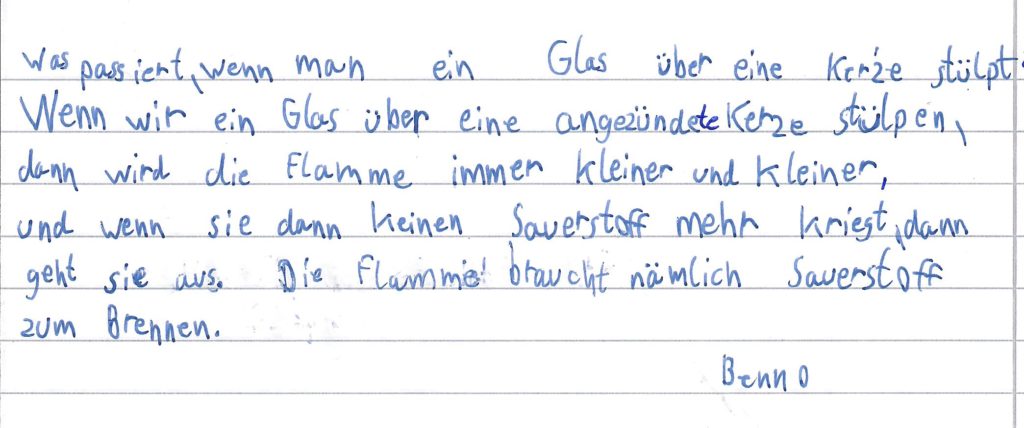 Was passiert, wenn man ein Glas über eine Kerze stülpt.
Wenn wir ein Glas über eine angezündete Kerze stülpen,
dann wird die Flamme immer kleiner und kleiner,
und wenn sie dann keinen Sauerstoff mehr kriegt, dann
geht sie aus. Die Flamme braucht nämlich Sauerstoff
zum Brennen.
Benno